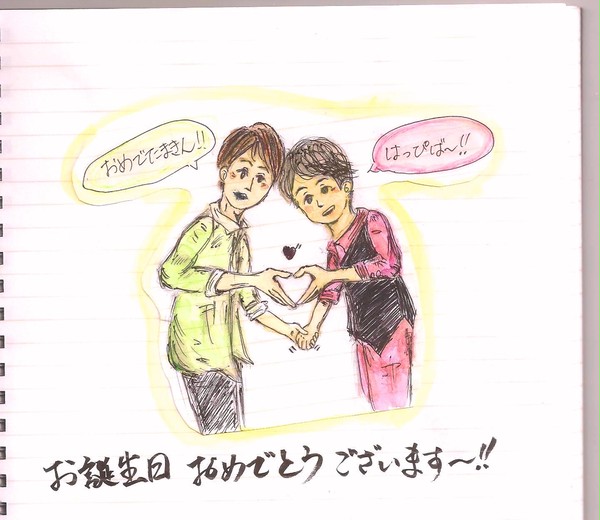 おめでたまきん!!
はっぴば〜!!
お誕生日 おめでとう ございます〜!!